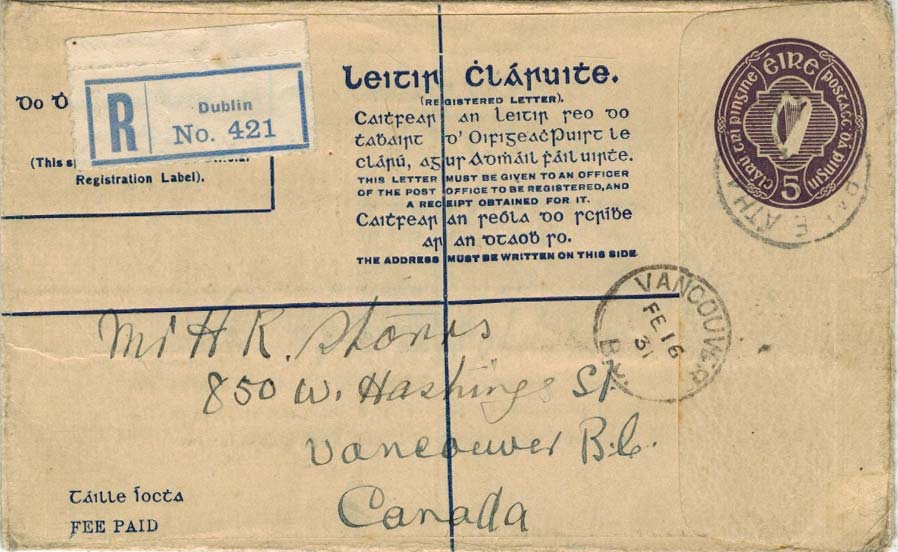 Do Ḋ
R
Dublin
No. 421
(This s
Registration Label).
Leitir Ċláruiṫe.
(REGISTERED LETTER).
Caiṫfear an leitir seo do
ṫaḃairt d' Oifigeaċ Puist le
clárú, agus Admáil ḟáil uirṫe.
THIS LETTER MUST BE GIVEN TO AN OFFICER
OF THE POST OFFICE TO BE REGISTERED, AND
A RECEIPT OBTAINED FOR IT.
Caiṫfear an seóla do scríḃe
ar an dtaoḃ so.
THE ADDRESS MUST BE WRITTEN ON THIS SIDE
ÉIRE
clárú trí pingine
dá pingin
5
E ÁTH
VANCOUVER
FE 16
31
B.C.
Mr H R. Storrs
850 W. Hastings St
Vancouver B.C.
Canada
Táille Íocta
FEE PAID